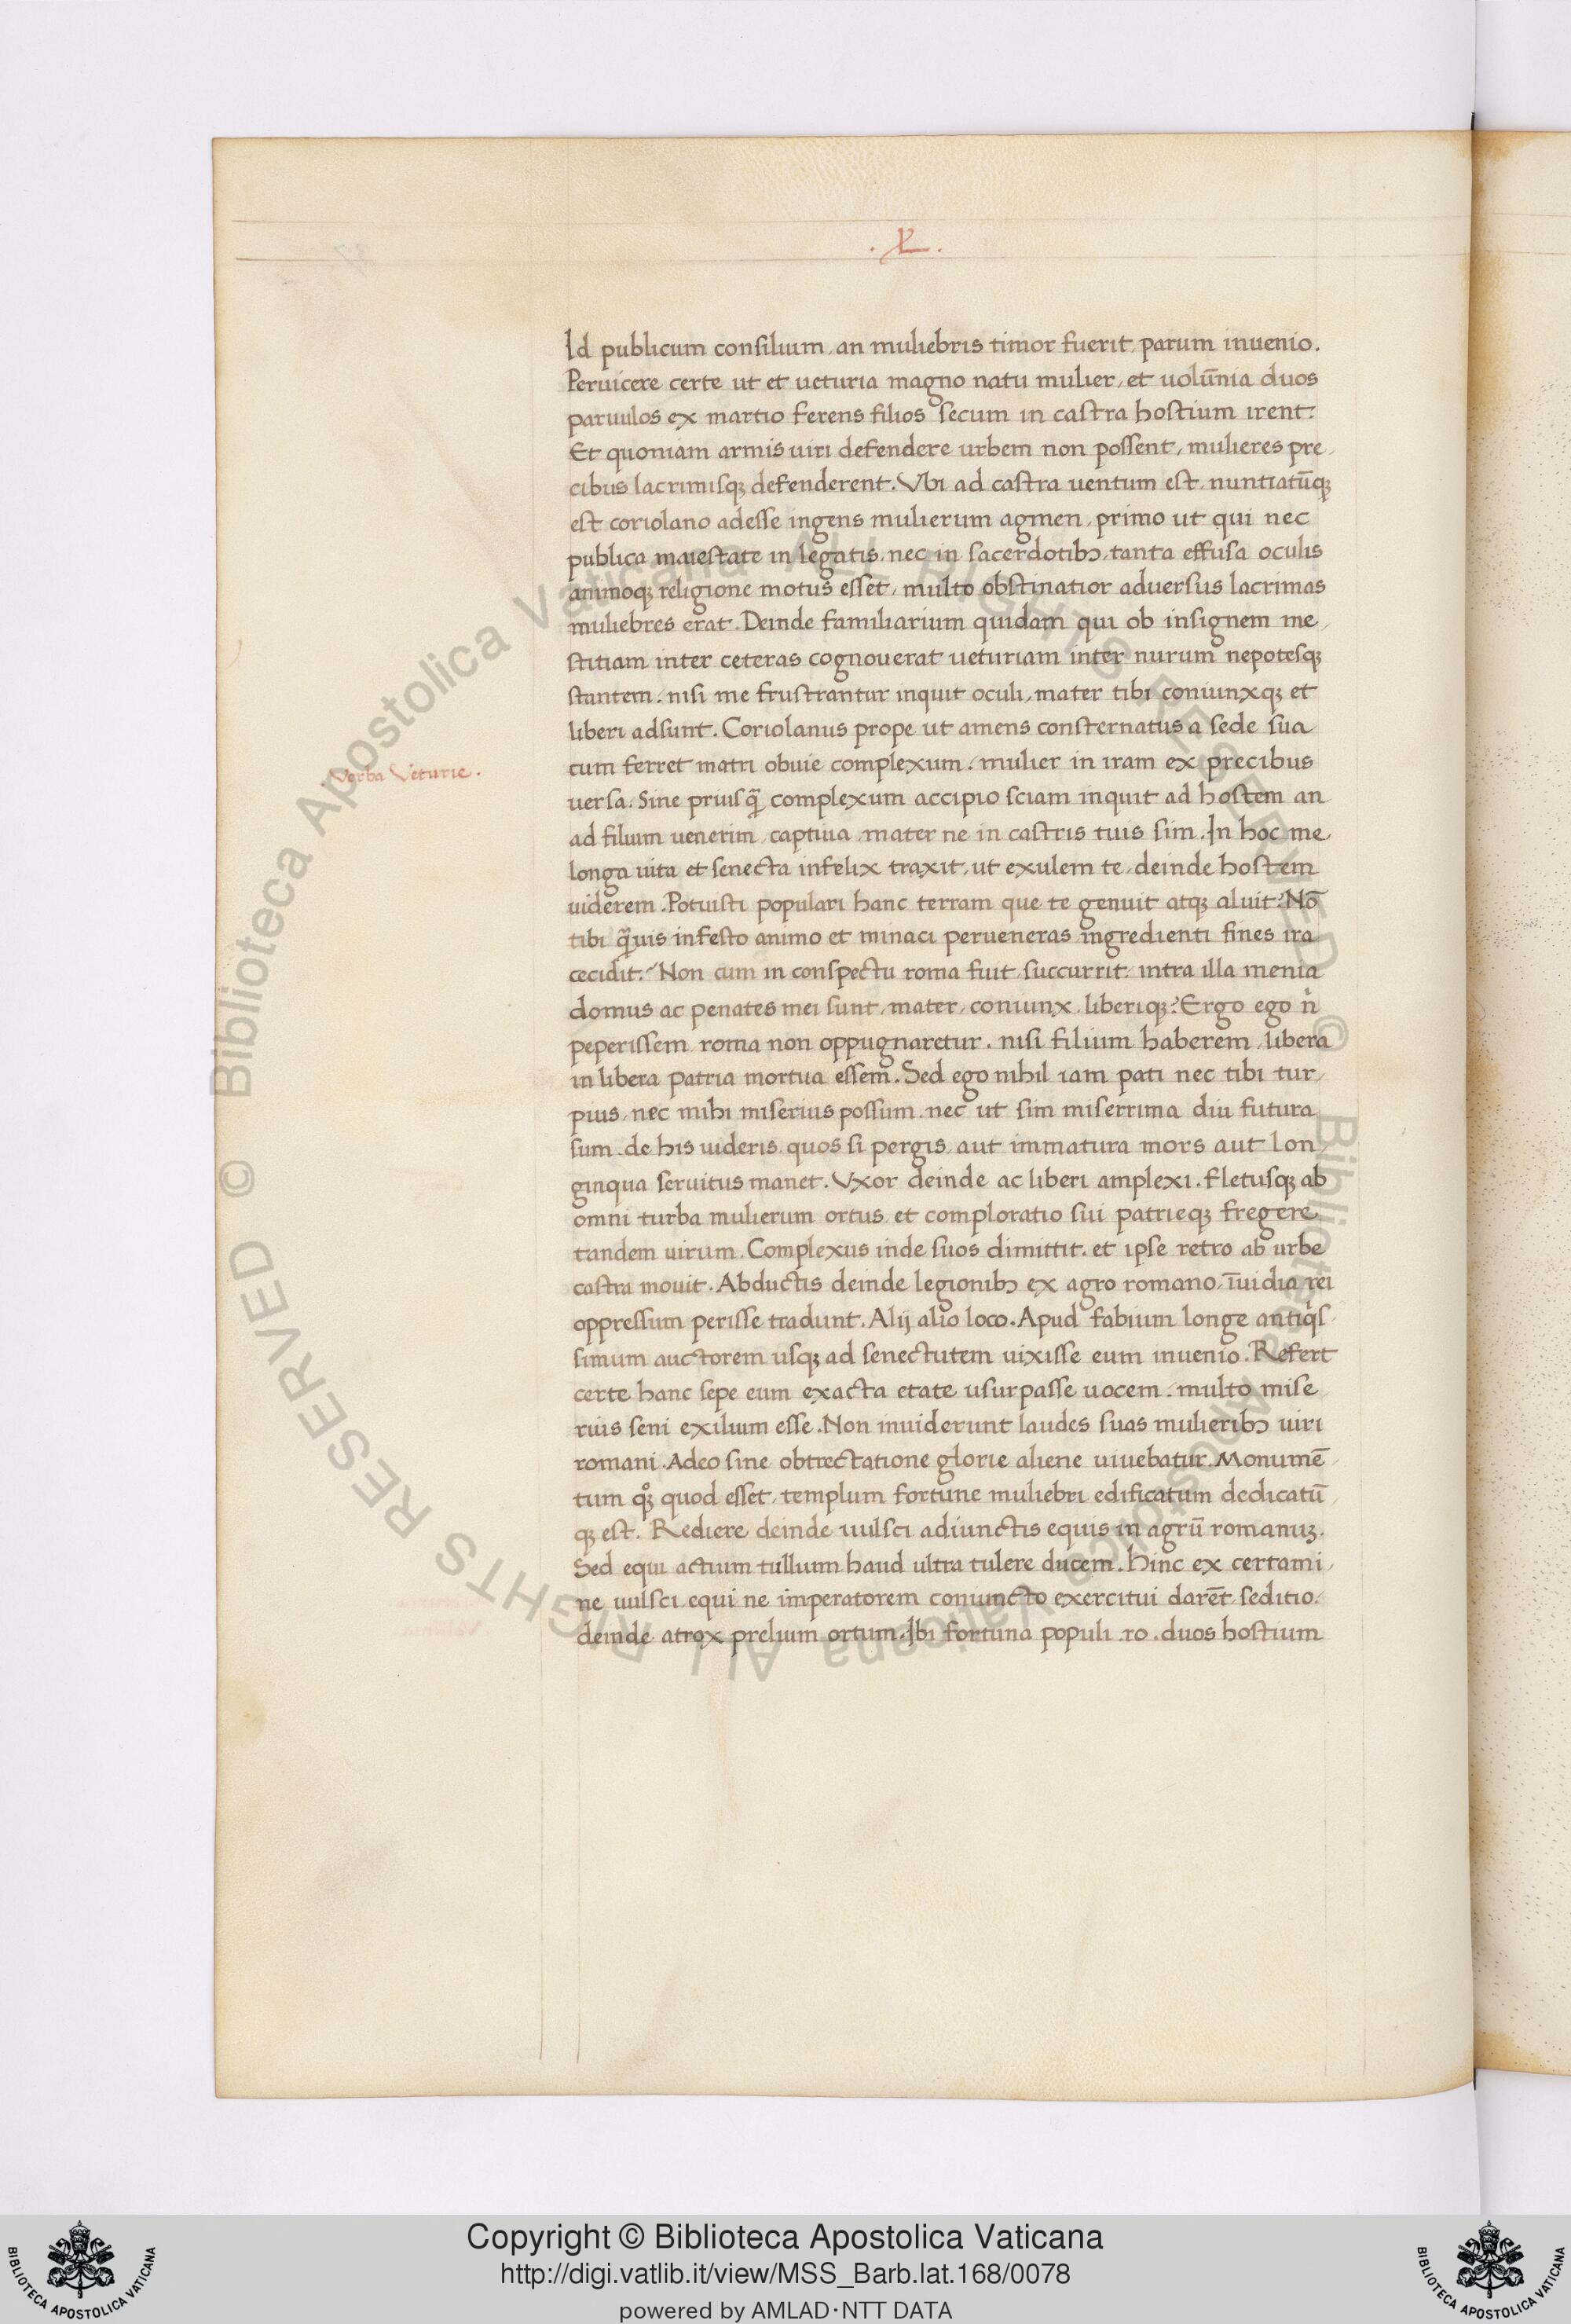 . XL .
Id publicum consilium, an muliebris timor fuerit, parum inuenio.
Peruicere certe ut et ueturia magno natu mulier, et uolūnia duos
paruulos ex martio ferens filios secum in castra hostium irent:
Et quoniam armis uiri defendere urbem non possent, mulieres pre,
cibus lacrimisqꝫ defenderent. Vbi ad castra uentum est, nuntiatūqꝫ
est coriolano adesse ingens mulierum agmen, primo ut qui nec
publica maiestate in legatis, nec in sacerdotibꝫ, tanta effusa oculis
animoqꝫ religione motus esset, multo obstinatior aduersus lacrimas
muliebres erat. Deinde familiarium quidam qui ob insignem me,
stitiam inter ceteras cognouerat ueturiam inter nurum nepotesqꝫ
stantem. nisi me frustrantur inquit oculi, mater tibi coniunxqꝫ et
liberi adsunt. Coriolanus prope ut amens consternatus a sede sua
cum ferret matri obuie complexum. mulier in iram ex precibus
Verba Veturie.
uersa. Sine priusq̄ complexum accipio sciam inquit ad hostem an
ad filium uenerim, captiua, mater ne in castris tuis sim. In hoc me
longa uita et senecta infelix traxit, ut exulem te, deinde hostem
uiderem. Potuisti populari hanc terram que te genuit atqꝫ aluit? Nō
tibi q̄uis infesto animo et minaci perueneras ingredienti fines ira
cecidit? Non cum in conspectu roma fuit succurrit: intra illa menia
domus ac penates mei sunt, mater, coniunx, liberiqꝫ? Ergo ego n̄
peperissem roma non oppugnaretur. nisi filium haberem, libera
in libera patria mortua essem. Sed ego nihil iam pati nec tibi tur,
pius, nec mihi miserius possum. nec ut sim miserrima diu futura
sum. de his uideris, quos si pergis, aut immatura mors aut lon,
ginqua seruitus manet. Vxor deinde ac liberi amplexi. fletusqꝫ ab
omni turba mulierum ortus, et comploratio sui patrieqꝫ fregere
tandem uirum. Complexus inde suos dimittit. et ipse retro ab urbe
castra mouit. Abductis deinde legionibꝫ ex agro romano, īuidia rei
oppressum perisse tradunt. Alij alio loco. Apud fabium longe antiq̍s,
simum auctorem usqꝫ ad senectutem uixisse eum inuenio. Refert
certe hanc sepe eum exacta etate usurpasse uocem. multo mise
rius seni exilium esse. Non inuiderunt laudes suas mulieribꝫ uiri
romani. Adeo sine obtrectatione glorie aliene uiuebatur. Monumē,
tum qͦꝫ quod esset, templum fortune muliebri edificatum dedicatū,
qꝫ est. Rediere deinde uulsci adiunctis equis in agrū romanuꝫ.
Sed equi actium tullium haud ultra tulere ducem. hinc ex certami,
ne uulsci equi ne imperatorem coniuncto exercitui darēt seditio.
deinde atrox prelium ortum. Ibi fortuna populi .ro. duos hostium
© Biblioteca Apostolica Vaticana ALL RIGHTS RESERVED © Biblioteca Apostolica Vaticana ALL RIGHTS RESERVED
Copyright © Biblioteca Apostolica Vaticana
http://digi.vatlib.it/view/MSS_Barb.lat.168/0078
powered by AMLAD·NTT DATA
BIBLIOTECA APOSTOLICA VATICANA
BIBLIOTECA APOSTOLICA VATICANA